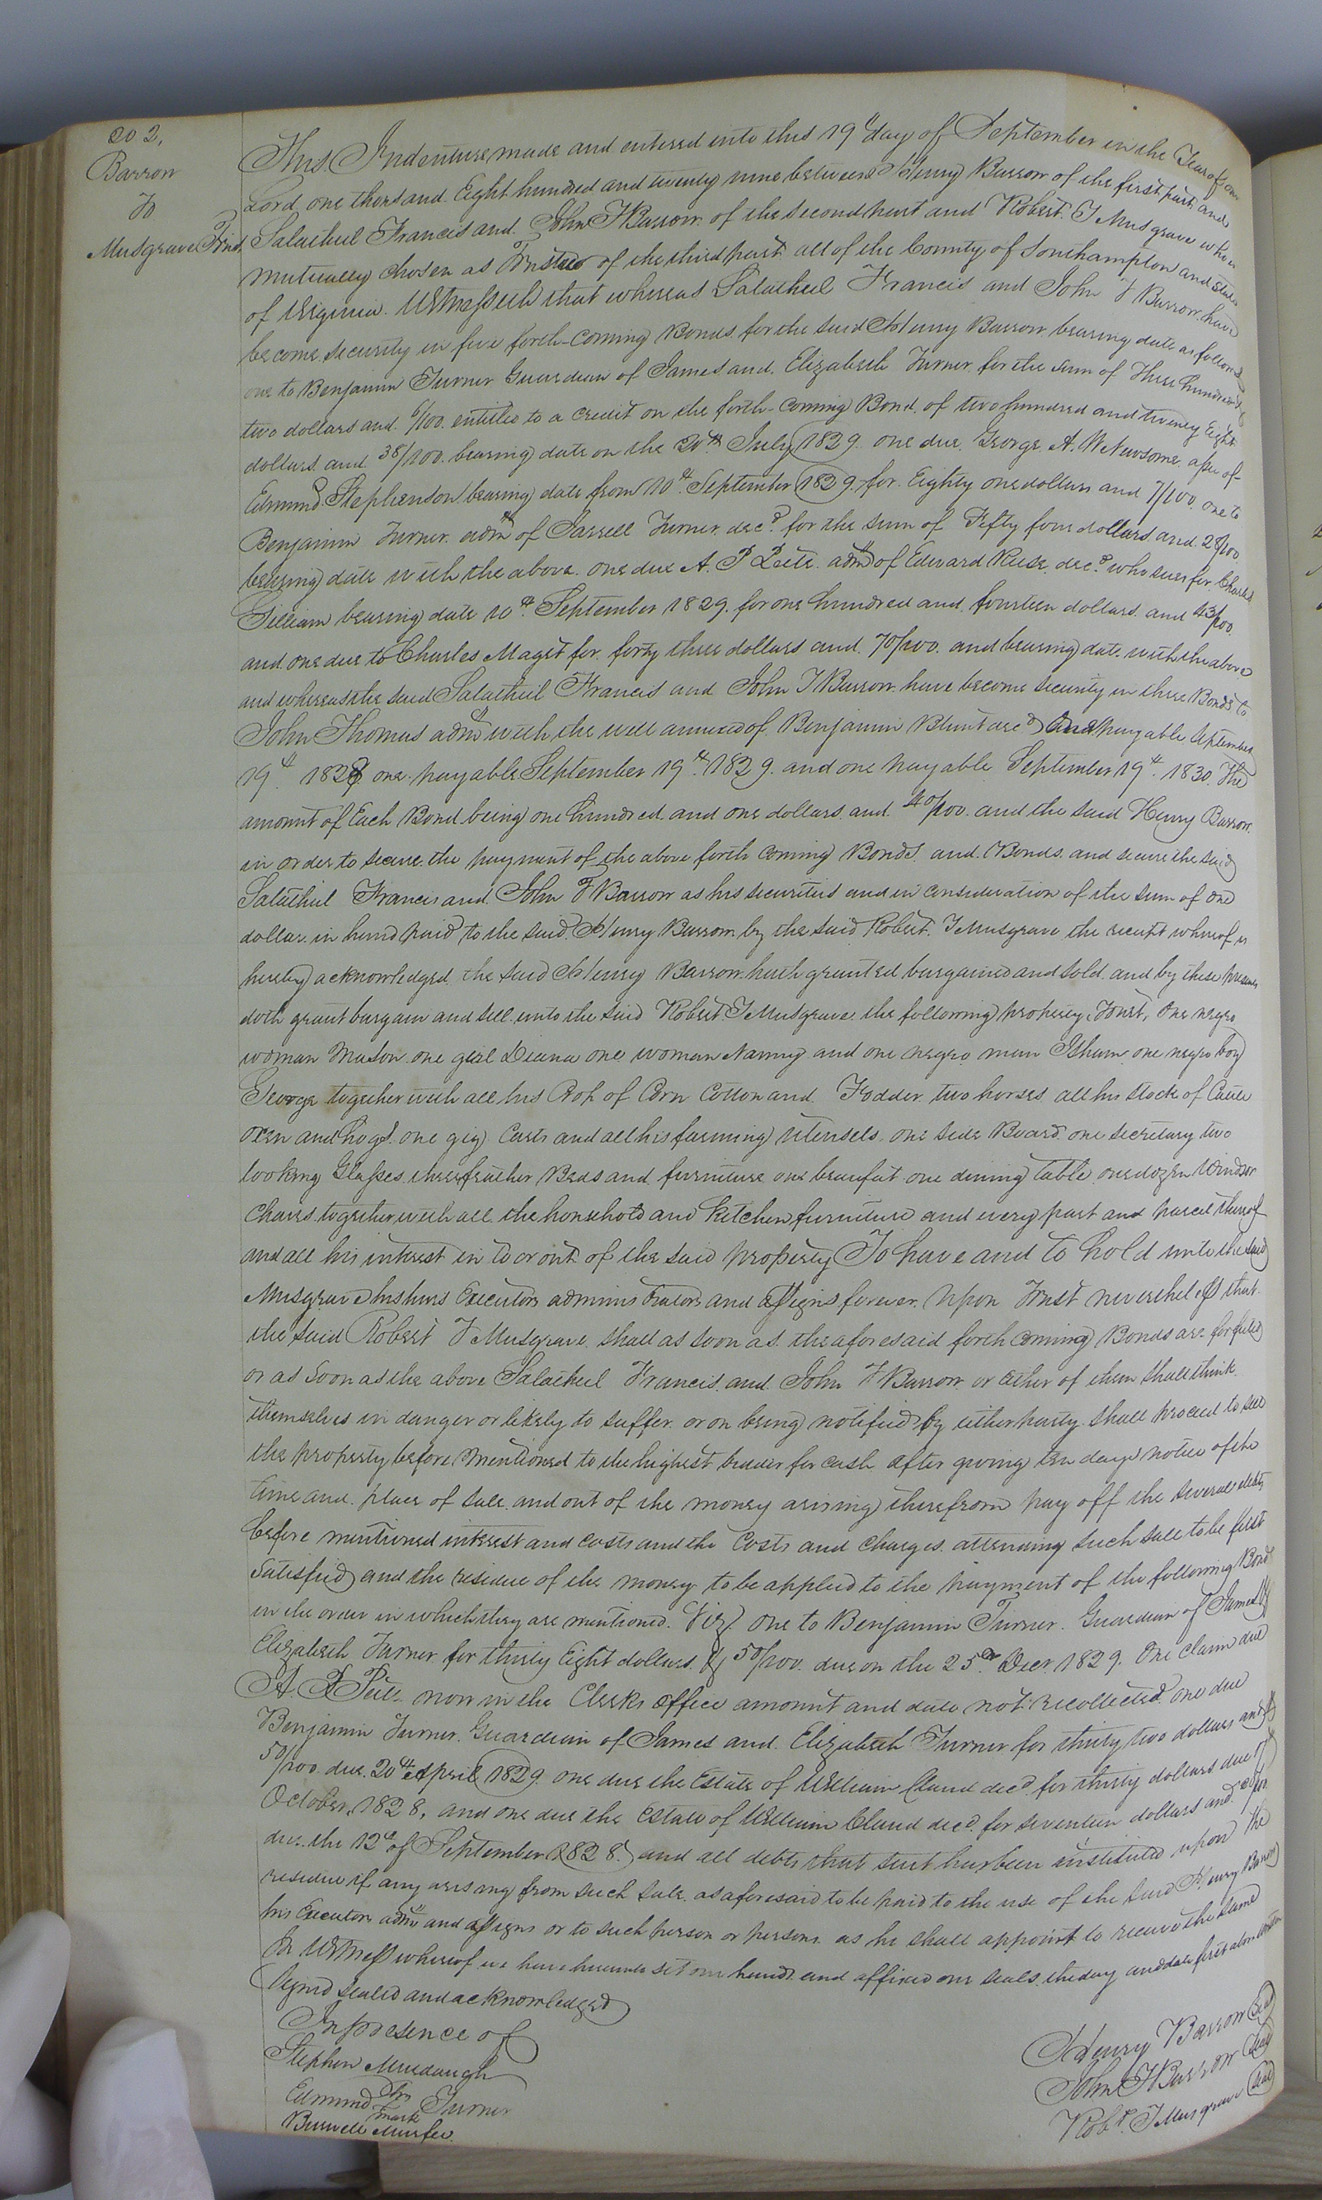 202.
Barrow
To
Musgrave Trind
This Indenture, made and entered into this 19th day of September in the Year of our
Lord one thousand Eight hundred and twenty nine between Henry Barrow of the first part and
Salathiel Francis and John T Barrow of the second part and Robert T Musgrave who is
mutually chosen as Trustee of the third part all of the County of Southampton and State
of Virginia. Witnesseth that whereas Salathiel Francis and John T Barrow have
become security in five forth-coming Bonds for the said Henry Barrow bearing date as follows
one to Benjamin Turner Guardian of James and Elizabeth Turner for the sum of Three hundred &
two dollars and /100 entitled to a credit on the forth-coming Bond of two hundred and twenty Eight
dollars and 38/100 bearing date on the 20th July 1829. one due George A. W. Newsome assee of
Edmund Stephenson bearing date from 10th September 1829 for Eighty one dollars and 7/100 one to
Benjamin Turner adm of Jarrell Turner decd for the sum of Fifty four dollars and 28/100
bearing date with the above one due A. P Peete adm of Edward Reese decd who sues for Charles
Gilliam bearing date 10th September 1829. for one hundred and fourteen dollars and 43/100
and one due to Charles Maget for forty three dollars and 70/100 and bearing date with the above
and whereas the said Salathiel Francis and John T Barrow have become security in three Bonds to
John Thomas adm with the will annexed of Benjamin Blunt decd payable September
19th 1828 one payable September 19th 1829. and one payable September 19th 1830. The
amount of Each Bond being one hundred and one dollars and 40/100. and the said Henry Barrow
in order to secure the payment of the above forth coming Bonds and Bonds and secure the said
Salathiel Francis and John T Barrow as his securities and in consideration of the sum of one
dollar in hand paid to the said Henry Barrow by the said Robert T Musgrave the receipt whereof is
hereby acknowledged the said Henry Barrow hath granted bargained and sold and by these presents
doth grant bargain and sell unto the said Robert T Musgrave the following property, To wit, One negro
woman Mason one girl Diana one woman Nanny and one negro man Isham one negro boy
George together with all his Crop of Corn Cotton and Fodder two horses all his stock of Cattle
Oxen and hogs. one gig Carts and all his farming utensels one side Board one secretary two
looking Glasses three feather Beds and furniture one beaufat one dining table one dozen Windsor
Chairs together with all the household and kitchen furniture and every part and parcel thereof
and all his interest in to or out of the said property To have and to hold unto the said
Musgrave his heirs Executors administrators and assigns forever. Upon Trust nevertheless that
the said Robert T Musgrave shall as soon as the aforesaid forth coming Bonds are forfeited
or as soon as the above Salathiel Francis and John T Barrow or Either of them shall think
themselves in danger or likely to suffer or on being notified by either party shall proceed to sell
the property before mentioned to the highest bidder for cash after giving ten days notice of the
time and place of sale and out of the money arising therefrom pay off the several debts
before mentioned interest and costs and the Costs and charges attending such sale to be first
satisfied and the residue of the money to be applied to the payment of the following Bond
in the order in which they are mentioned. Viz. one to Benjamin Turner Guardian of James &
Elizabeth Turner for thirty Eight dollars & 50/100 due on the 25th Decr 1829. One Claim due
A P Peete now in the Clerks office amount and date not recollected one due
Benjamin Turner Guardian of James and Elizabeth Turner for thirty two dollars and
50/100 due 20th April 1829 one due the Estate of William Claud decd for thirty dollars due
October 1828, and one due the Estate of William Claud decd for seventeen dollars and
due the 12th of September 1828. and all debts that suit has been instituted upon The
residue if any arising from such sale as aforesaid to be paid to the use of the said Henry Barrow
his Executors adms and assigns or to such person or persons as he shall appoint to receive the same
In Witness whereof we have hereunto set our hands and affixed our seals the day and date first above written
Signed sealed and acknowledged
In presence of
Stephen Murdaugh
his
Edmund Turner
mark
Burwell Murfee
Henry Barrow Seal
John T Barrow Seal
Robt. T Musgrave Seal